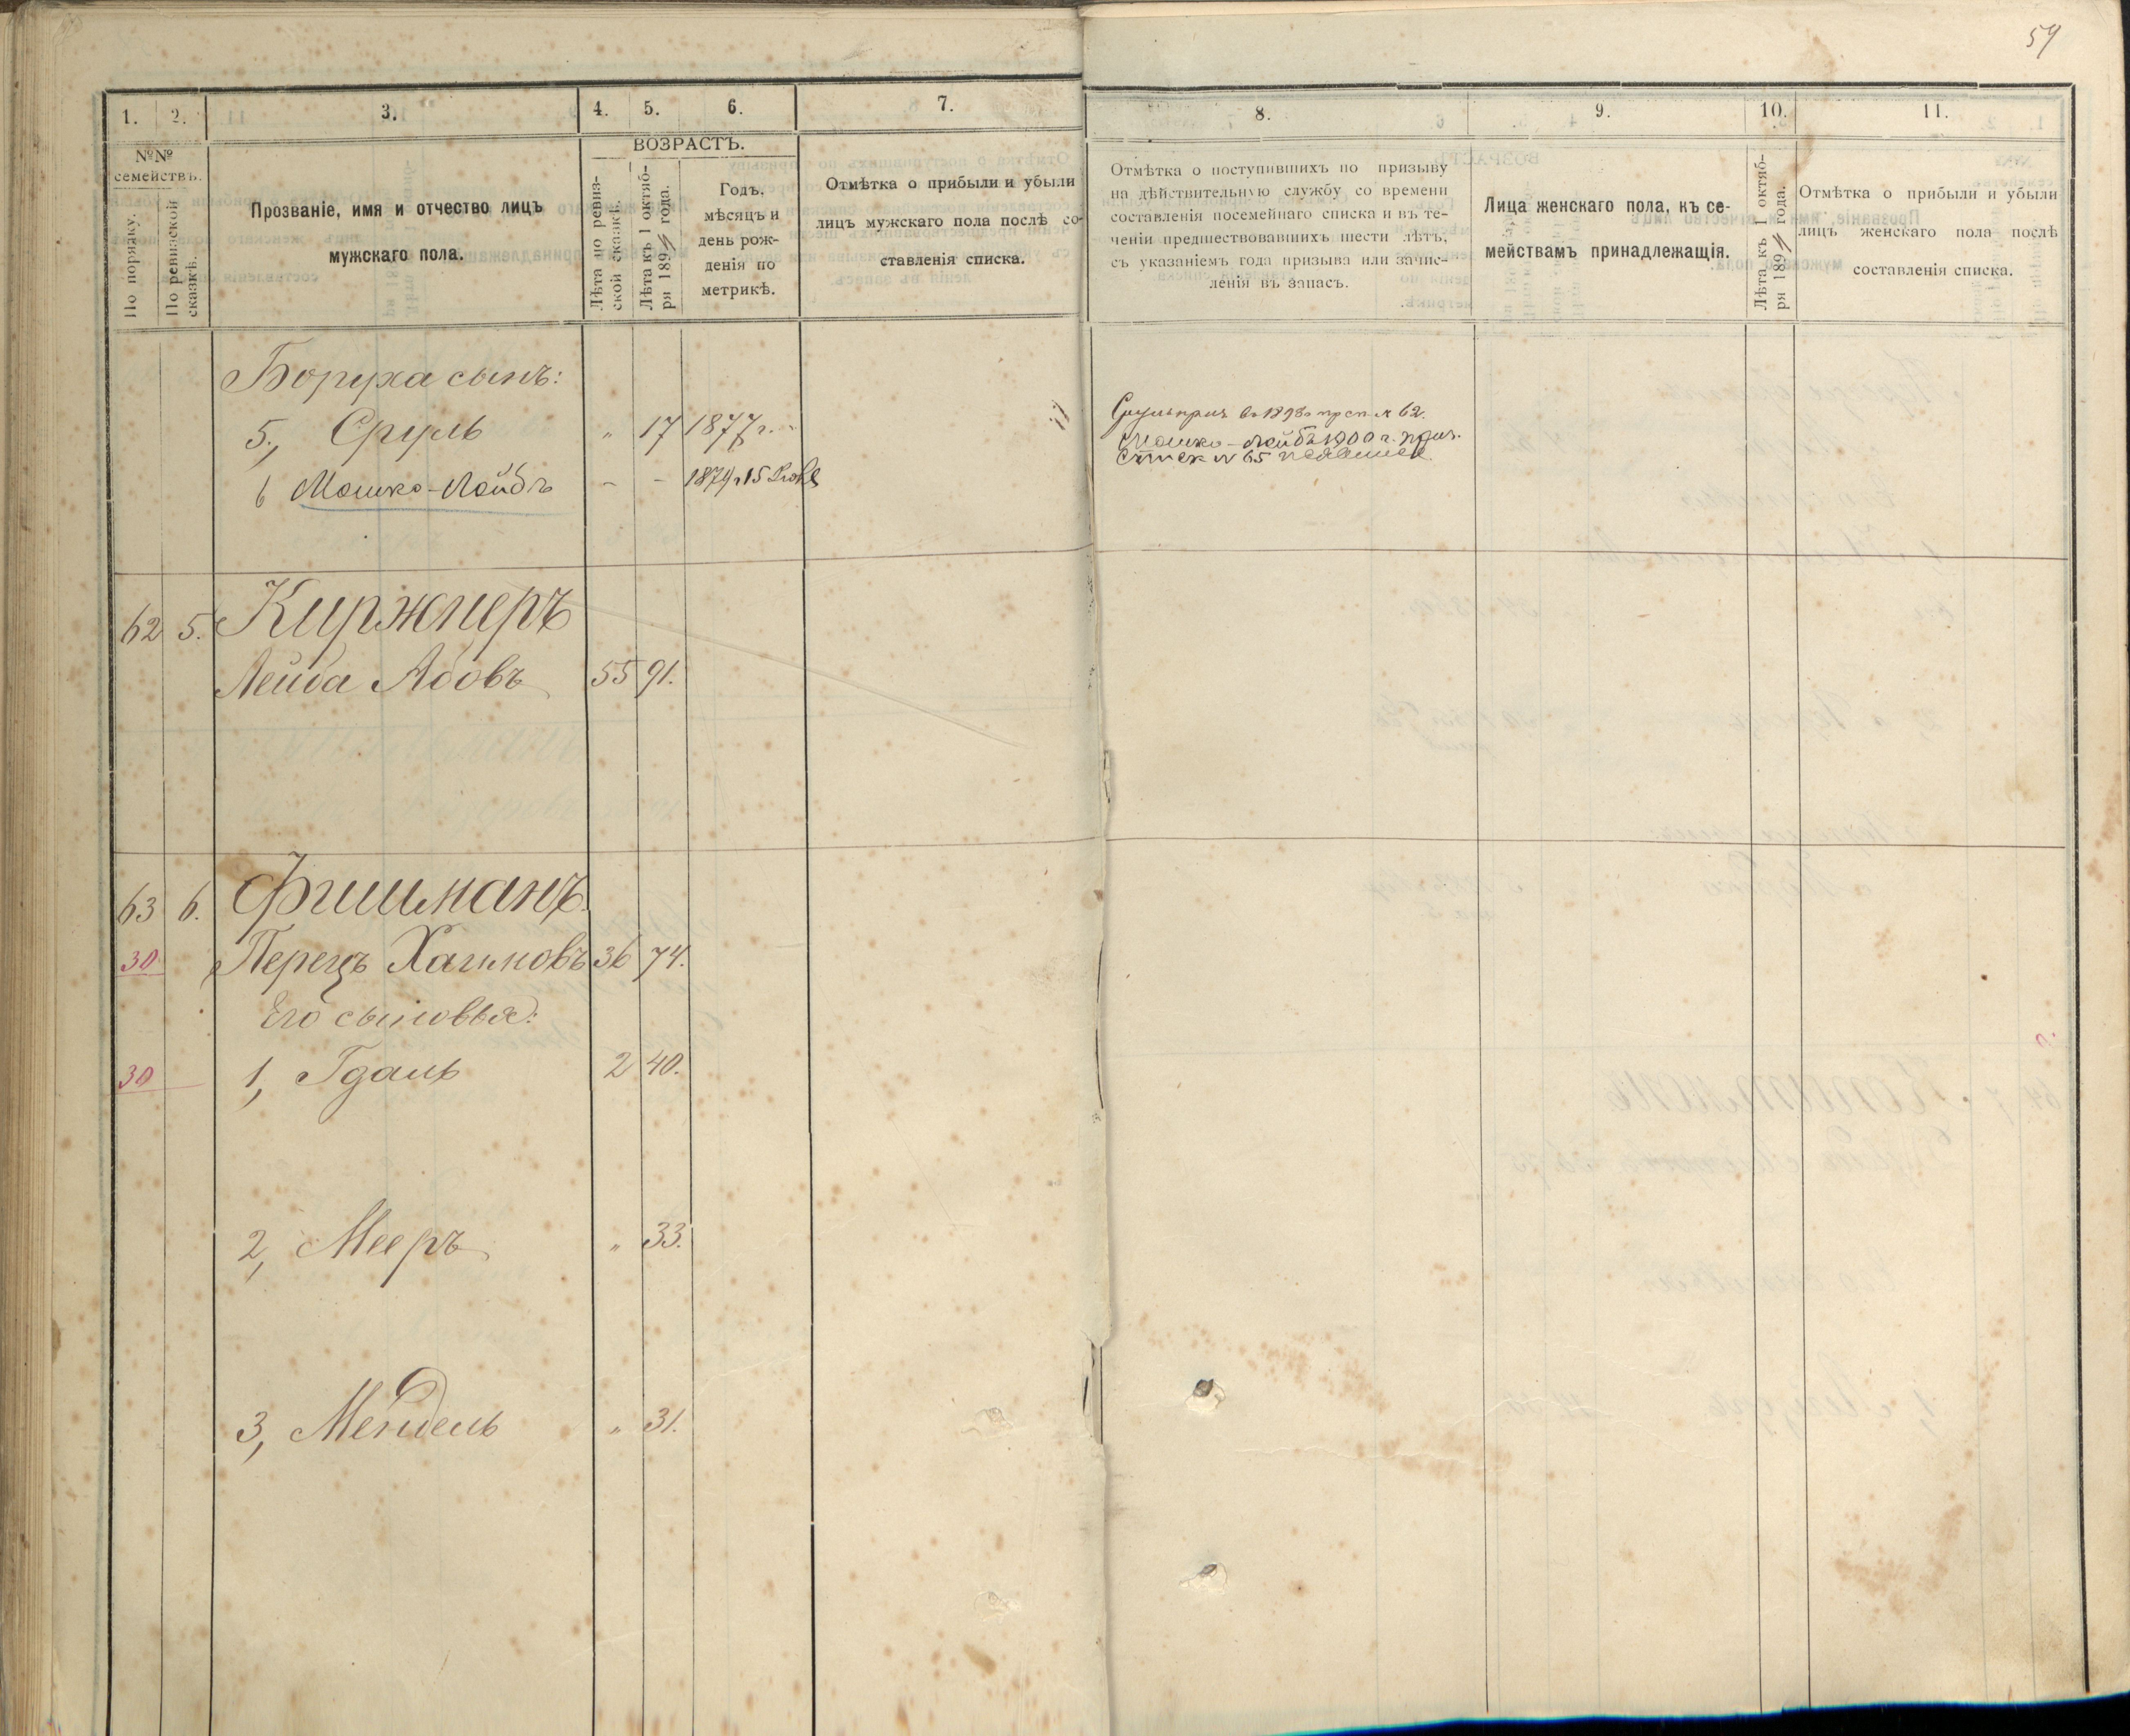 59
1. 2. 3. 4. 5. 6. 7. 8. 9. 10. 11.
№№
семействъ.
По порядку.
По ревизской
сказкѣ.
Прозваніе, имя и отчество лицъ
мужскаго пола.
ВОЗРАСТЪ.
Лѣта по ревиз-
ской сказкѣ.
Лѣта къ 1 октяб-
ря 1894 года.
Годъ.
мѣсяцъ и
день рож-
денія по
метрикѣ.
Отмѣтка о прибыли и убыли
лицъ мужскаго пола послѣ со-
ставленія списка.
Отмѣтка о поступившихъ по призыву
на дѣйствительную службу со времени
составленія посемейнаго списка и въ те-
ченіи предшествовавшихъ шести лѣтъ,
съ указаніемъ года призыва или зачис-
ленія въ запасъ.
Лица женскаго пола, къ се-
мействамъ принадлежащія.
Лѣта къ 1 октяб-
ря 1894 года.
Отмѣтка о прибыли и убыли
лицъ женскаго пола послѣ
составленія списка.
Боруха сынъ:
5, Сруль " 17 1877 г.
6 Мошко-Лейбъ - - 1879 г 15
Сруль приз. въ 1898 пр сп. № 62.
Мошко-Лейбъ 1900 г. приз.
Список № 65
62 5. Киржнеръ
Лейба Абовъ 55 91.
63 6. Фишманъ
30 Перецъ Хаимовъ 36 74.
Его сыновья:
30 1, Гдаль 2 40.
2, Мееръ " 33.
3, Мендель " 31.